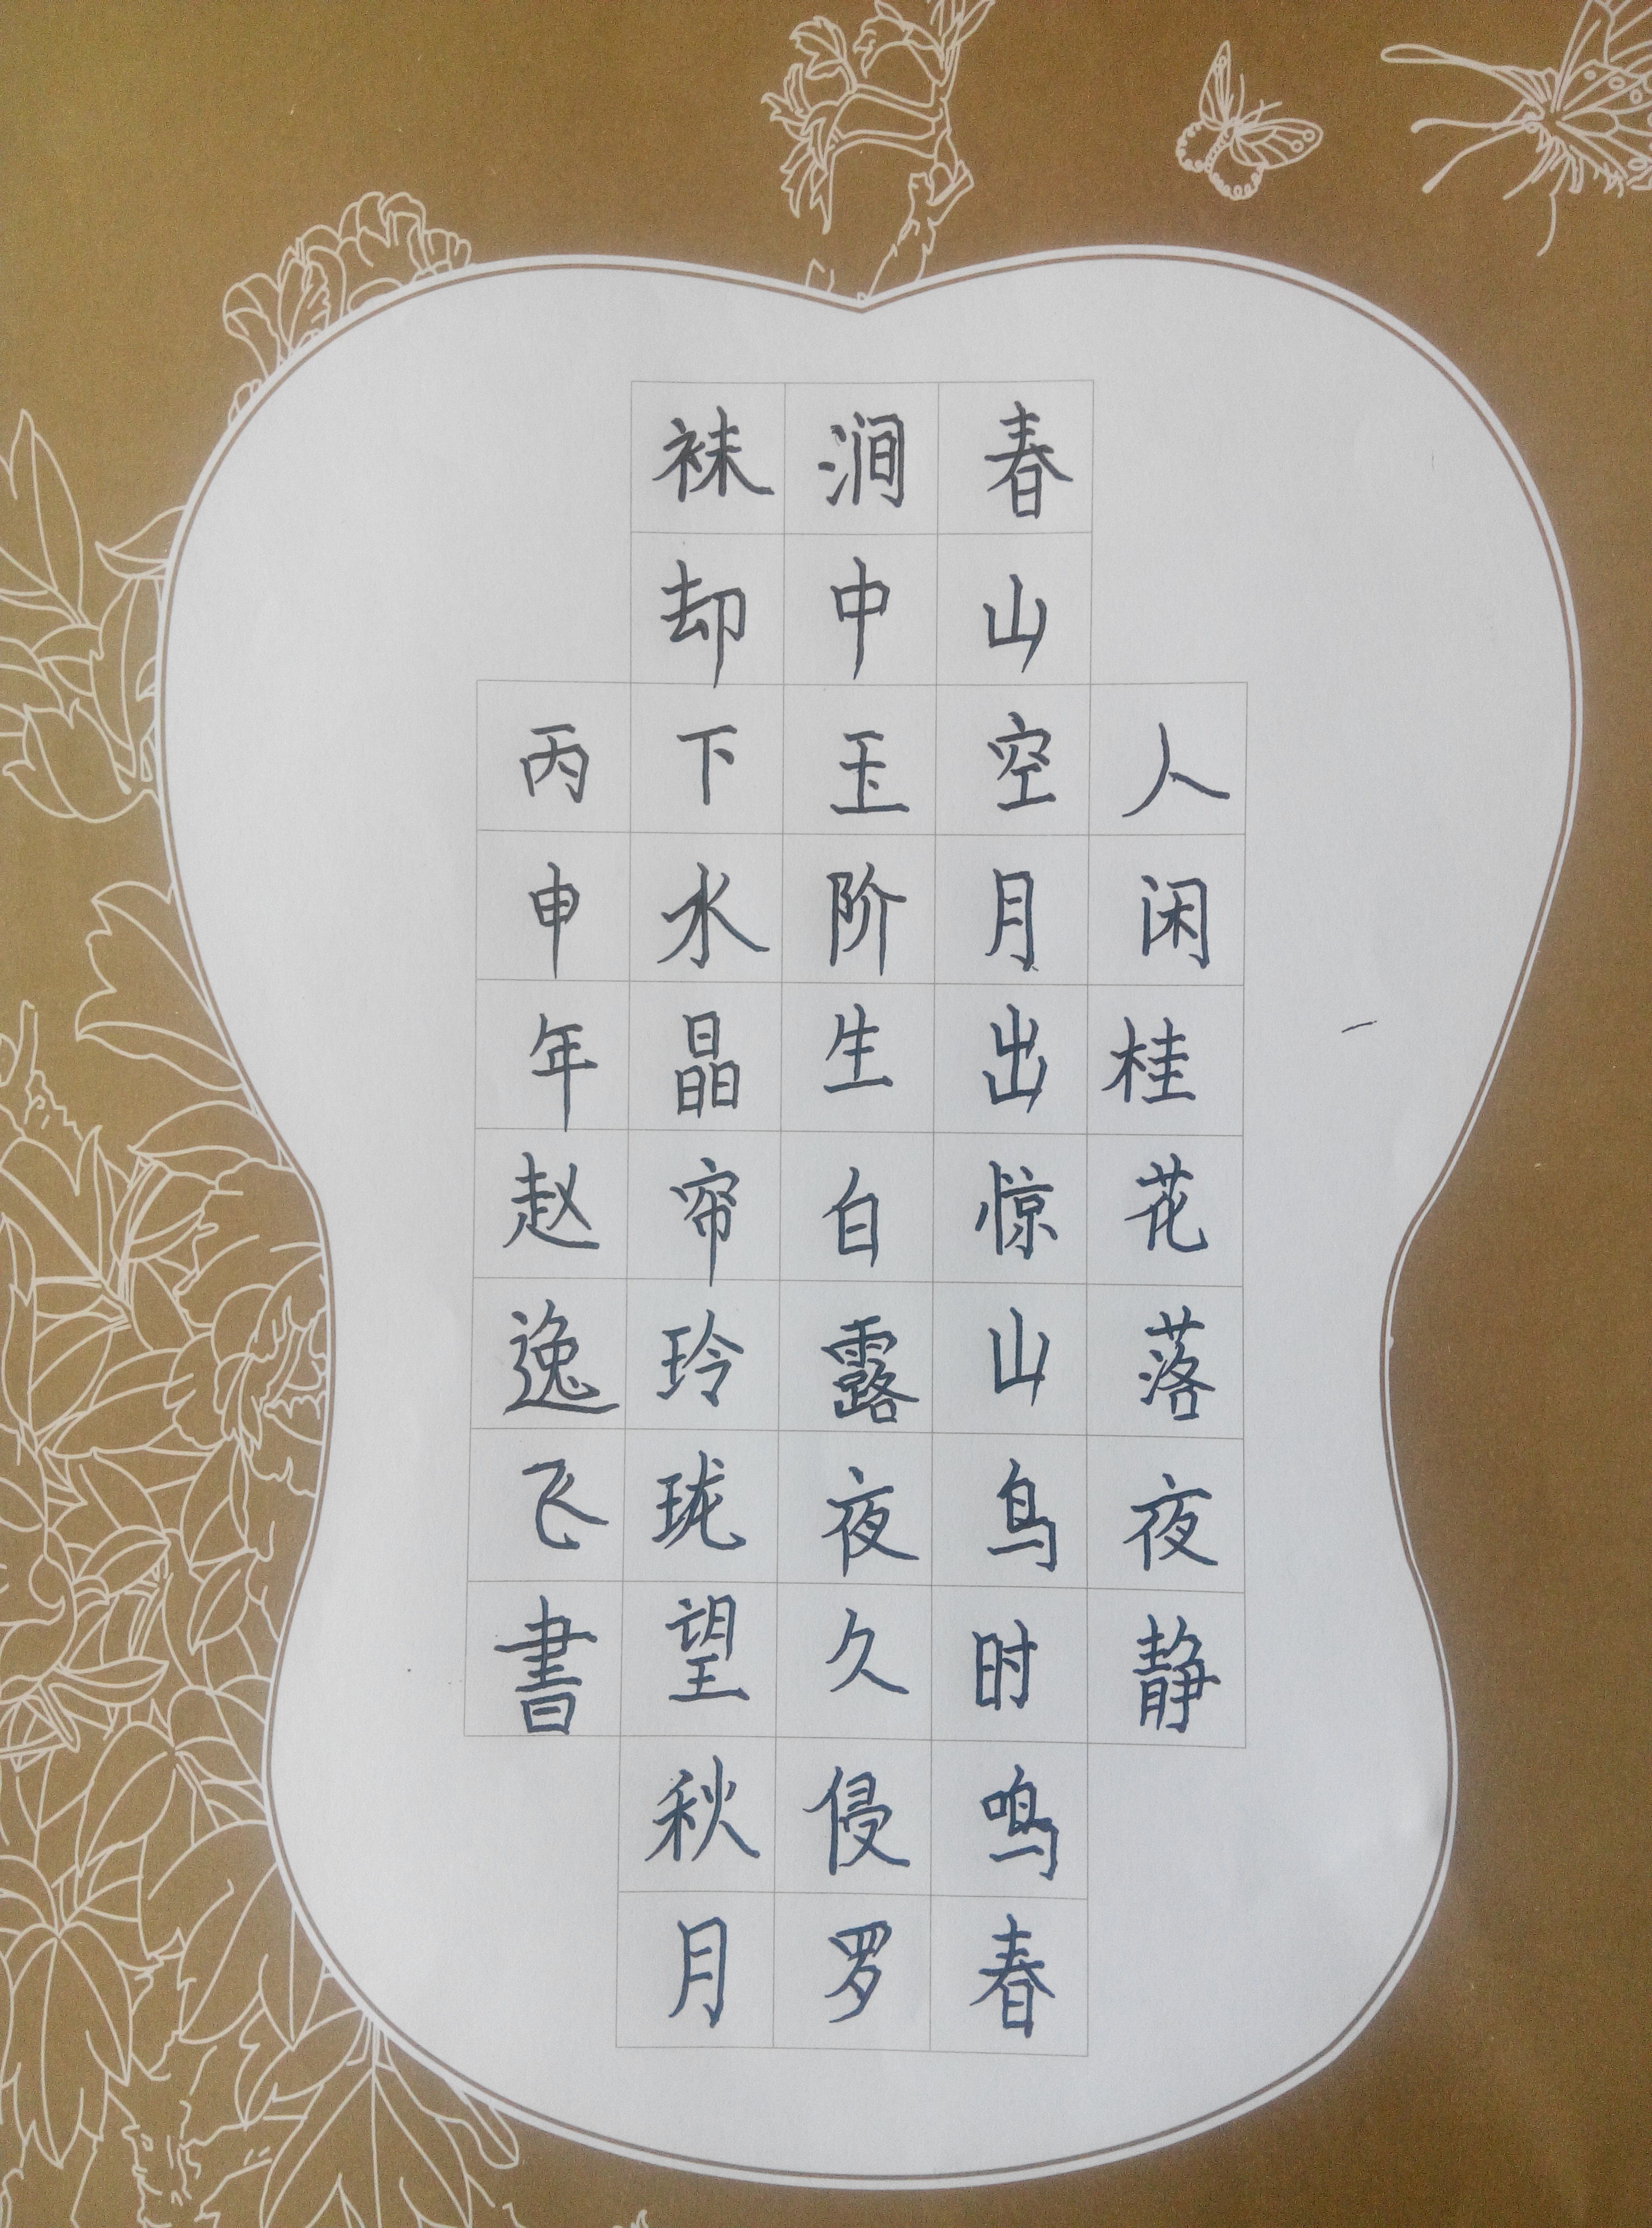 人闲桂花落夜静
春山空月出惊山鸟时鸣春
涧中玉阶生白露夜久侵罗
袜却下水晶帘玲珑望秋月
丙申年赵逸飞書